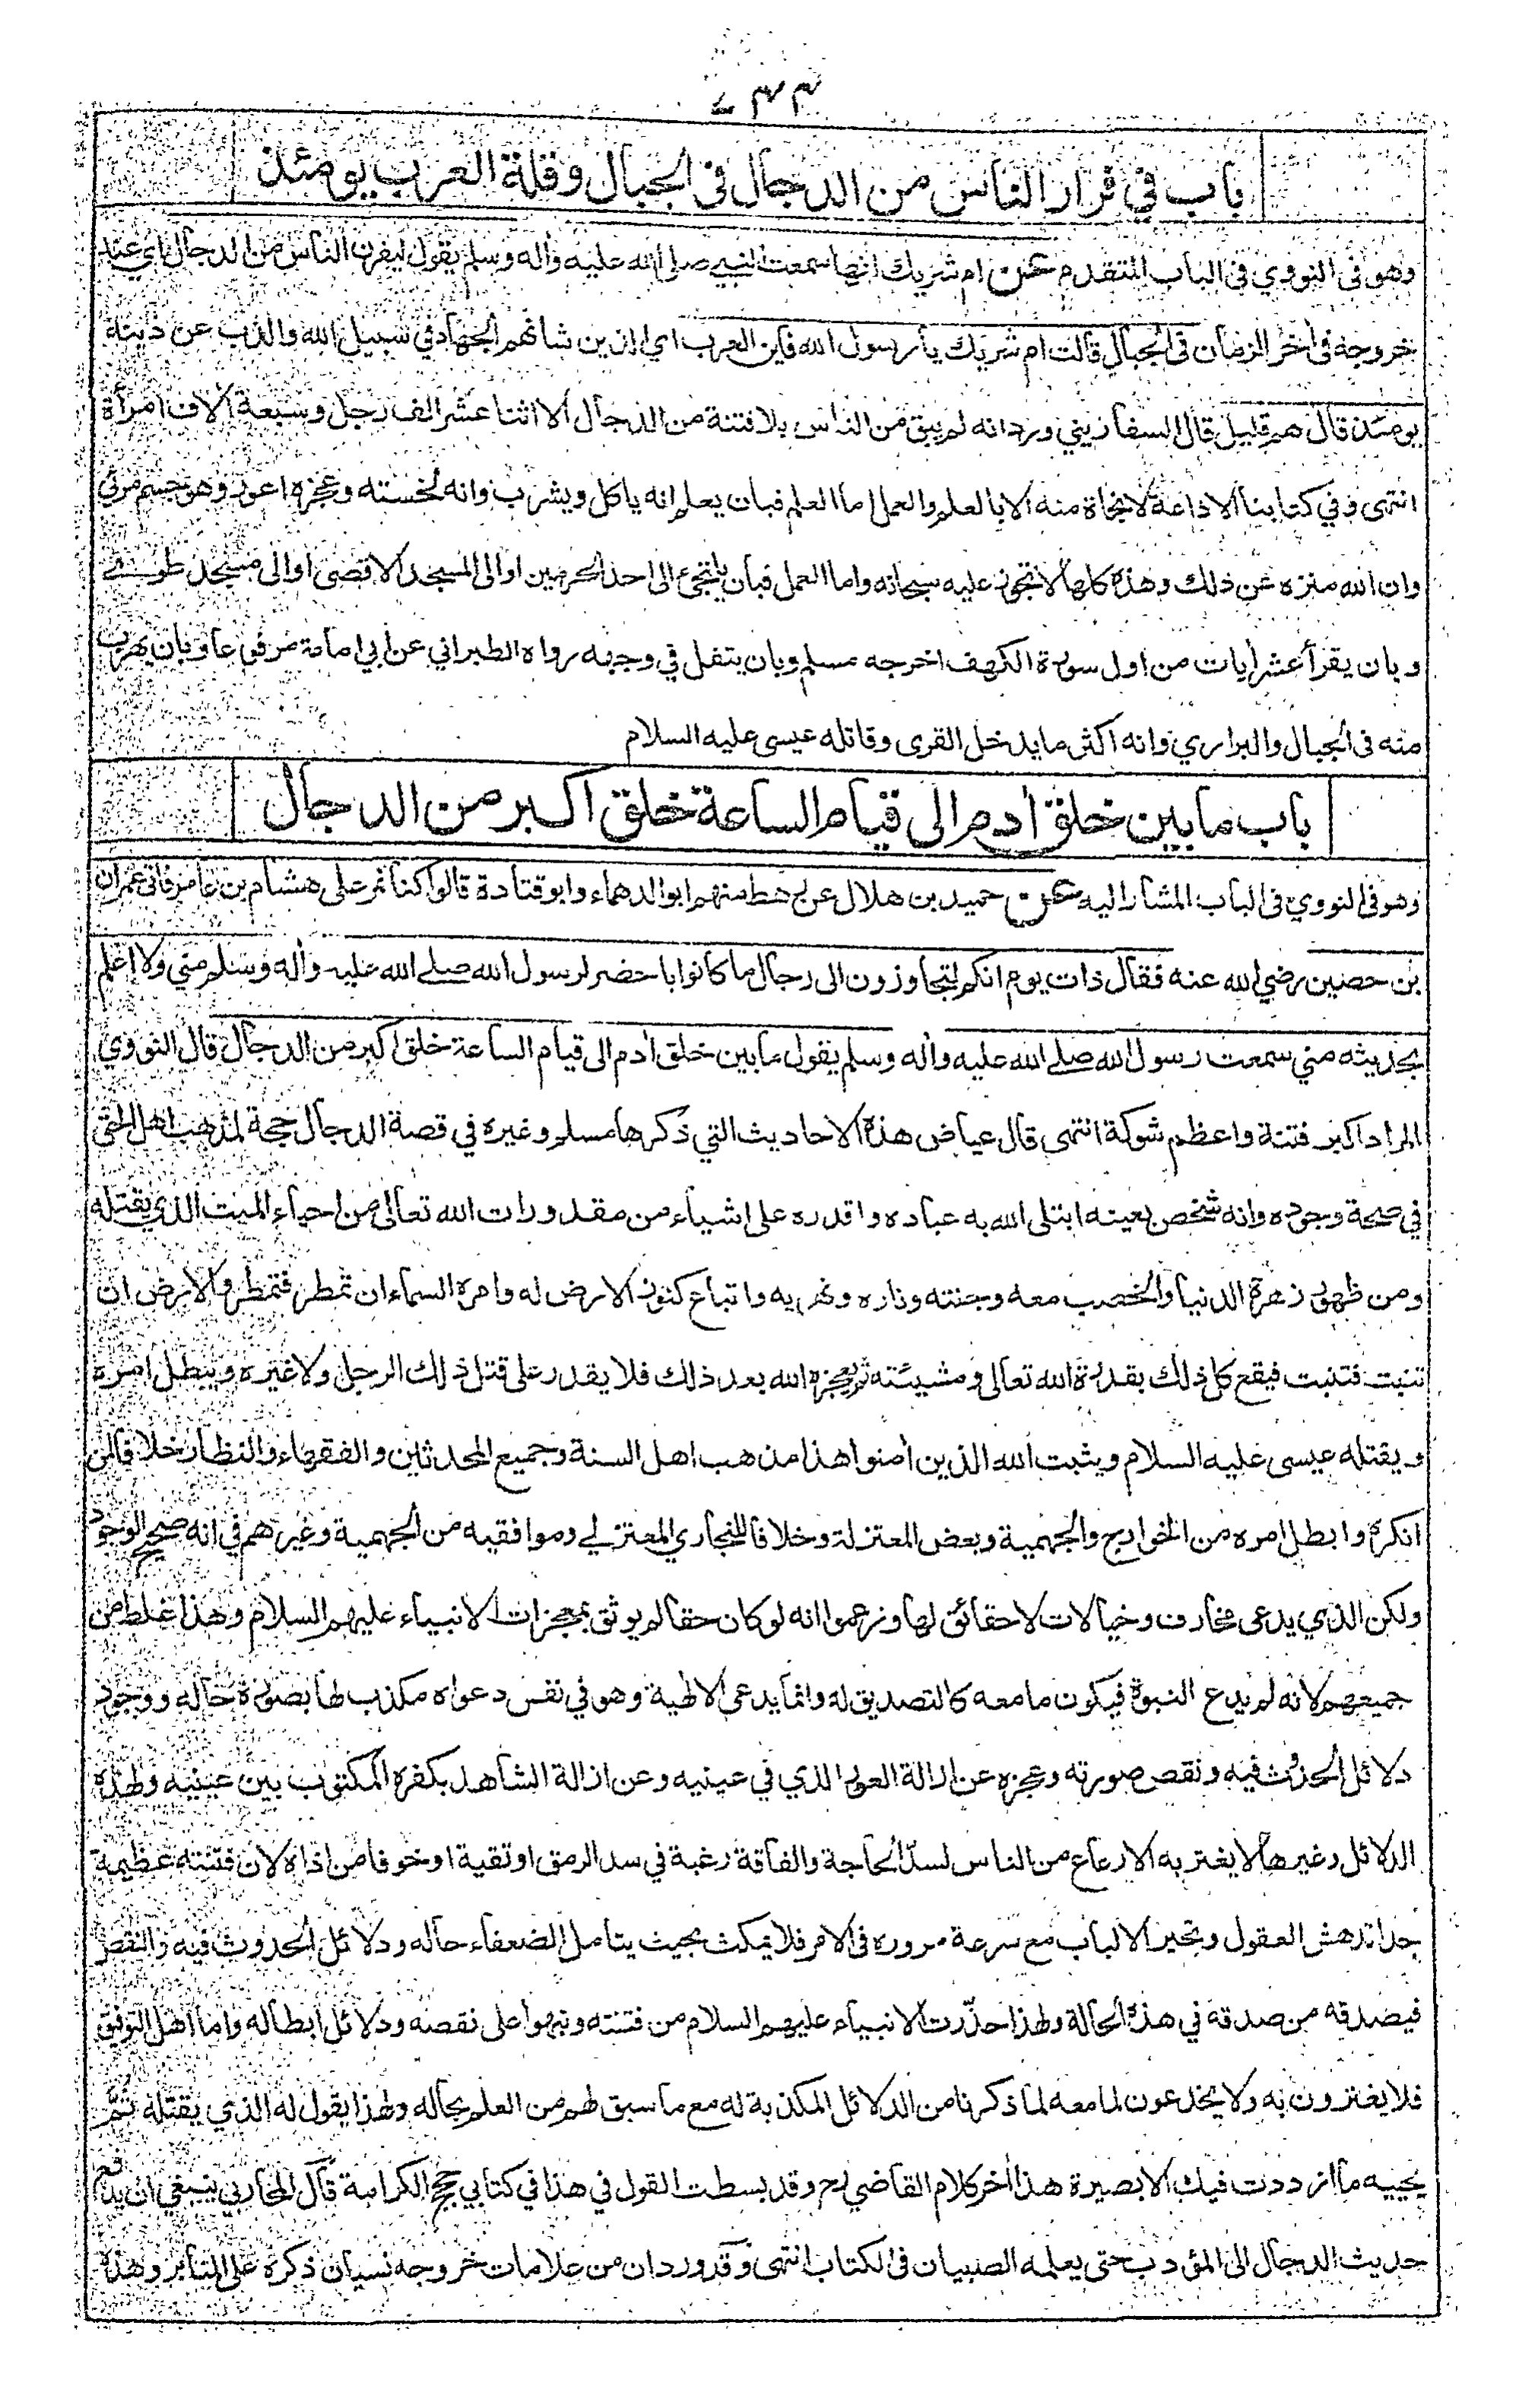 باب في فرار الناس من الدجال في الجبال وقلة العرب يومئذ
وهو في النووي في الباب المتقدم عن ام شريك انها سمعت النبي صلى الله عليه وآله وسلم يقول ليفرن الناس من الدجال اي عند
خروجه في اخر الزمان في الجبال قالت ام شريك يا رسول الله فاين العرب اي الذين شانهم الجهاد في سبيل الله والذب عن دينه
يومئذ قال هم قليل قال السفاريني ورد انه لم يبق من الناس بلا فتنة من الدجال الا اثنا عشر الف رجل وسبعة آلاف امرأة
انتهى وفي كتابنا الاذاعة لا نجاة منه الا بالعلم والعمل اما العلم فبان يعلم انه ياكل ويشرب وانه لخسته وعجزه اعور وهو جسم مرئي
وان الله منزه عن ذلك وهذه كلها لا تجوز عليه سبحانه واما العمل فبأن يلتجئ الى احد الحرمين او الى المسجد الاقصى او الى مسجد طور
وبان يقرأ عشر آيات من اول سورة الكهف اخرجه مسلم وبان يتفل في وجهه رواه الطبراني عن ابي امامة مرفوعا وبان يهرب
منه في الجبال والبراري وانه اكثر ما يدخل القرى وقاتله عيسى عليه السلام
باب ما بين خلق آدم الى قيام الساعة خلق اكبر من الدجال
وهو في النووي في الباب المشار اليه عن حميد بن هلال عن رهط منهم ابو الدهماء وابو قتادة قالوا كنا نمر على هشام بن عامر فاتى عمران
بن حصين رضي الله عنه فقال ذات يوم انكم لتجاوزون الى رجال ما كانوا باحضر لرسول الله صلے الله عليه وآله وسلم مني ولا اعلم
بحديثه مني سمعت رسول الله صلے الله عليه وآله وسلم يقول ما بين خلق آدم الى قيام الساعة خلق اكبر من الدجال قال النووي
المراد اكبر فتنة واعظم شوكة انتهى قال عياض هذه الاحاديث التي ذكرها مسلم وغيره في قصة الدجال حجة لمذهب اهل الحق
في صحة وجوده وانه شخص بعينه ابتلى الله به عباده واقدره على اشياء من مقدورات الله تعالى من احياء الميت الذي يقتله
ومن ظهور زهرة الدنيا والخصب معه وجنته وناره ونهريه واتباع كنوز الارض له وامره السماء ان تمطر فتمطر والارض ان
تنبت فتنبت فيقع كل ذلك بقدرة الله تعالى ومشيئته ثم يعجزه الله بعد ذلك فلا يقدر على قتل ذلك الرجل ولا غيره ويبطل امره
ويقتله عيسى عليه السلام ويثبت الله الذين آمنوا هذا مذهب اهل السنة وجميع المحدثين والفقهاء والنظار خلافا لمن
انكره وابطل امره من الخوارج والجهمية وبعض المعتزلة وخلافا للنجاري المعتزلے وموافقيه من الجهمية وغيرهم في انه صحيح الوجود
ولكن الذي يدعى مخارف وخيالات لا حقائق لها وزعموا انه لو كان حقا لم يوثق بمعجزات الانبياء عليهم السلام وهذا غلط من
جميعهم لانه لم يدع النبوة فيكون ما معه كالتصديق له وانما يدعى الالهية وهو في نفس دعواه مكذب لها بصورة حاله ووجود
دلائل الحدوث فيه ونقص صورته وعجزه عن ازالة العور الذي في عينيه وعن ازالة الشاهد بكفره المكتوب بين عينيه ولهذه
الدلائل وغيرها لا يغتر به الا رعاع من الناس لسدّ الحاجة والفاقة رغبة في سد الرمق او تقية او خوفا من اذاه لان فتنته عظيمة
جدا تدهش العقول وتحير الالباب مع سرعة مروره في الامر فلا يمكث بحيث يتامل الضعفاء حاله ودلائل الحدوث فيه والنقص
فيصدقه من صدقه في هذه الحالة ولهذا حذّرت الانبياء عليهم السلام من فتنته ونبهوا على نقصه ودلائل ابطاله واما اهل التوفيق
فلا يغترون به ولا يخدعون لما معه لما ذكرنا من الدلائل المكذبة له مع ما سبق لهم من العلم بحاله ولهذا يقول له الذي يقتله ثم
يحييه ما ازددت فيك الا بصيرة هذا آخر كلام القاضي رح وقد بسطت القول في هذا في كتابي حجج الكرامة قال المحاربي ينبغي ان يدفع
حديث الدجال الى المؤدب حتى يعلمه الصبيان في الكتاب انتهى وقد ورد ان من علامات خروجه نسيان ذكره على المنابر وهذا